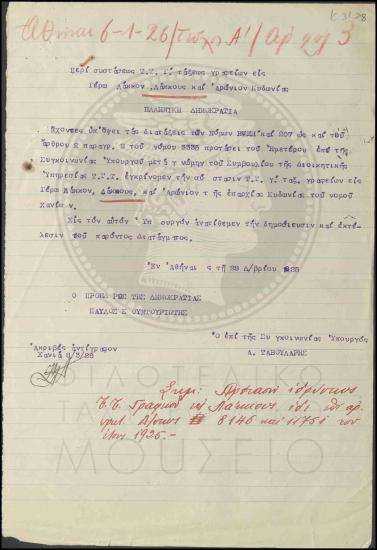 K 31.28
Αθήναι 6-1-26/Τεύχ Α'/Αρ. φυλ 3
Περί συστάσεως Τ.Τ. Γ' τάξεως γραφείων εις
Γέρο Λάκκον, Λάκκους και Αράνιον Κυδωνίας
ΕΛΛΗΝΙΚΗ ΔΗΜΟΚΡΑΤΙΑ
Έχοντες υπ'όψει τας διατάξεις των Νόμων και 207 ως και του
άρθρου 2 παραγρ. 2 του νόμου 3335 προτάσει του Ημετέρου επί της
Συγκοινωνίας Υπουργού μετά γνώμην του Συμβουλίου της Διοικητικής
Υπηρεσίας Τ.Τ.Τ. εγκρίνομεν την σύστασιν Τ.Τ. γ' ταξ. γραφείων εις
Γέρο Λάκκον, Λάκκους, και Αράνιον της επαρχίας Κυδωνίας του νομού
Χανίων.
Εις τον αυτόν Υπουργόν ανατίθεμεν την δημοσίευσιν και εκτέ-
λεσιν του παρόντος Διατάγματος.
Εν Αθήναις τη 29 Δ/βρίου 1925
Ο ΠΡΟΕΔΡΟΣ ΤΗΣ ΔΗΜΟΚΡΑΤΙΑΣ
ΠΑΥΛΟΣ Κ ΟΥΝΤΟΥΡΙΩΤΗΣ
Ο επί της Συγκοινωνίας Υπουργός
Α. ΤΑΒΟΥΛΑΡΗΣ
Ακριβές αντίγραφον
Χανιά 8/3/28
Σημ: Πρότασις ιδρύσεως
Τ.Τ. Γραφείου εις Λάκκους, υπό αρ.
8146 και 11751 του
έτους 1925.-
ΦΙΛΟΤΕΛΙΚΟ
ΜΟΥΣΕΙΟ